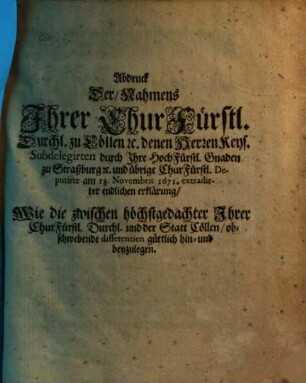 Abdruck
Der/Nahmens
Ihrer ChurFürstl.
Durchl. zu Cöllen ꝛc. denen Herren Keys.
Subdelegirten durch Ihre HochFürstl. Gnaden
zu Straßburg ꝛc. und übrige ChurFürstl. De-
putirte am 18. Novembris 1671. extradir-
ter endlichen erklärung/
Wie die zwischen höchstgedachter Ihrer
ChurFürstl. Durchl. und der Statt Cöllen/ob-
schwebende differentien güttlich hin- und
beyzulegen.